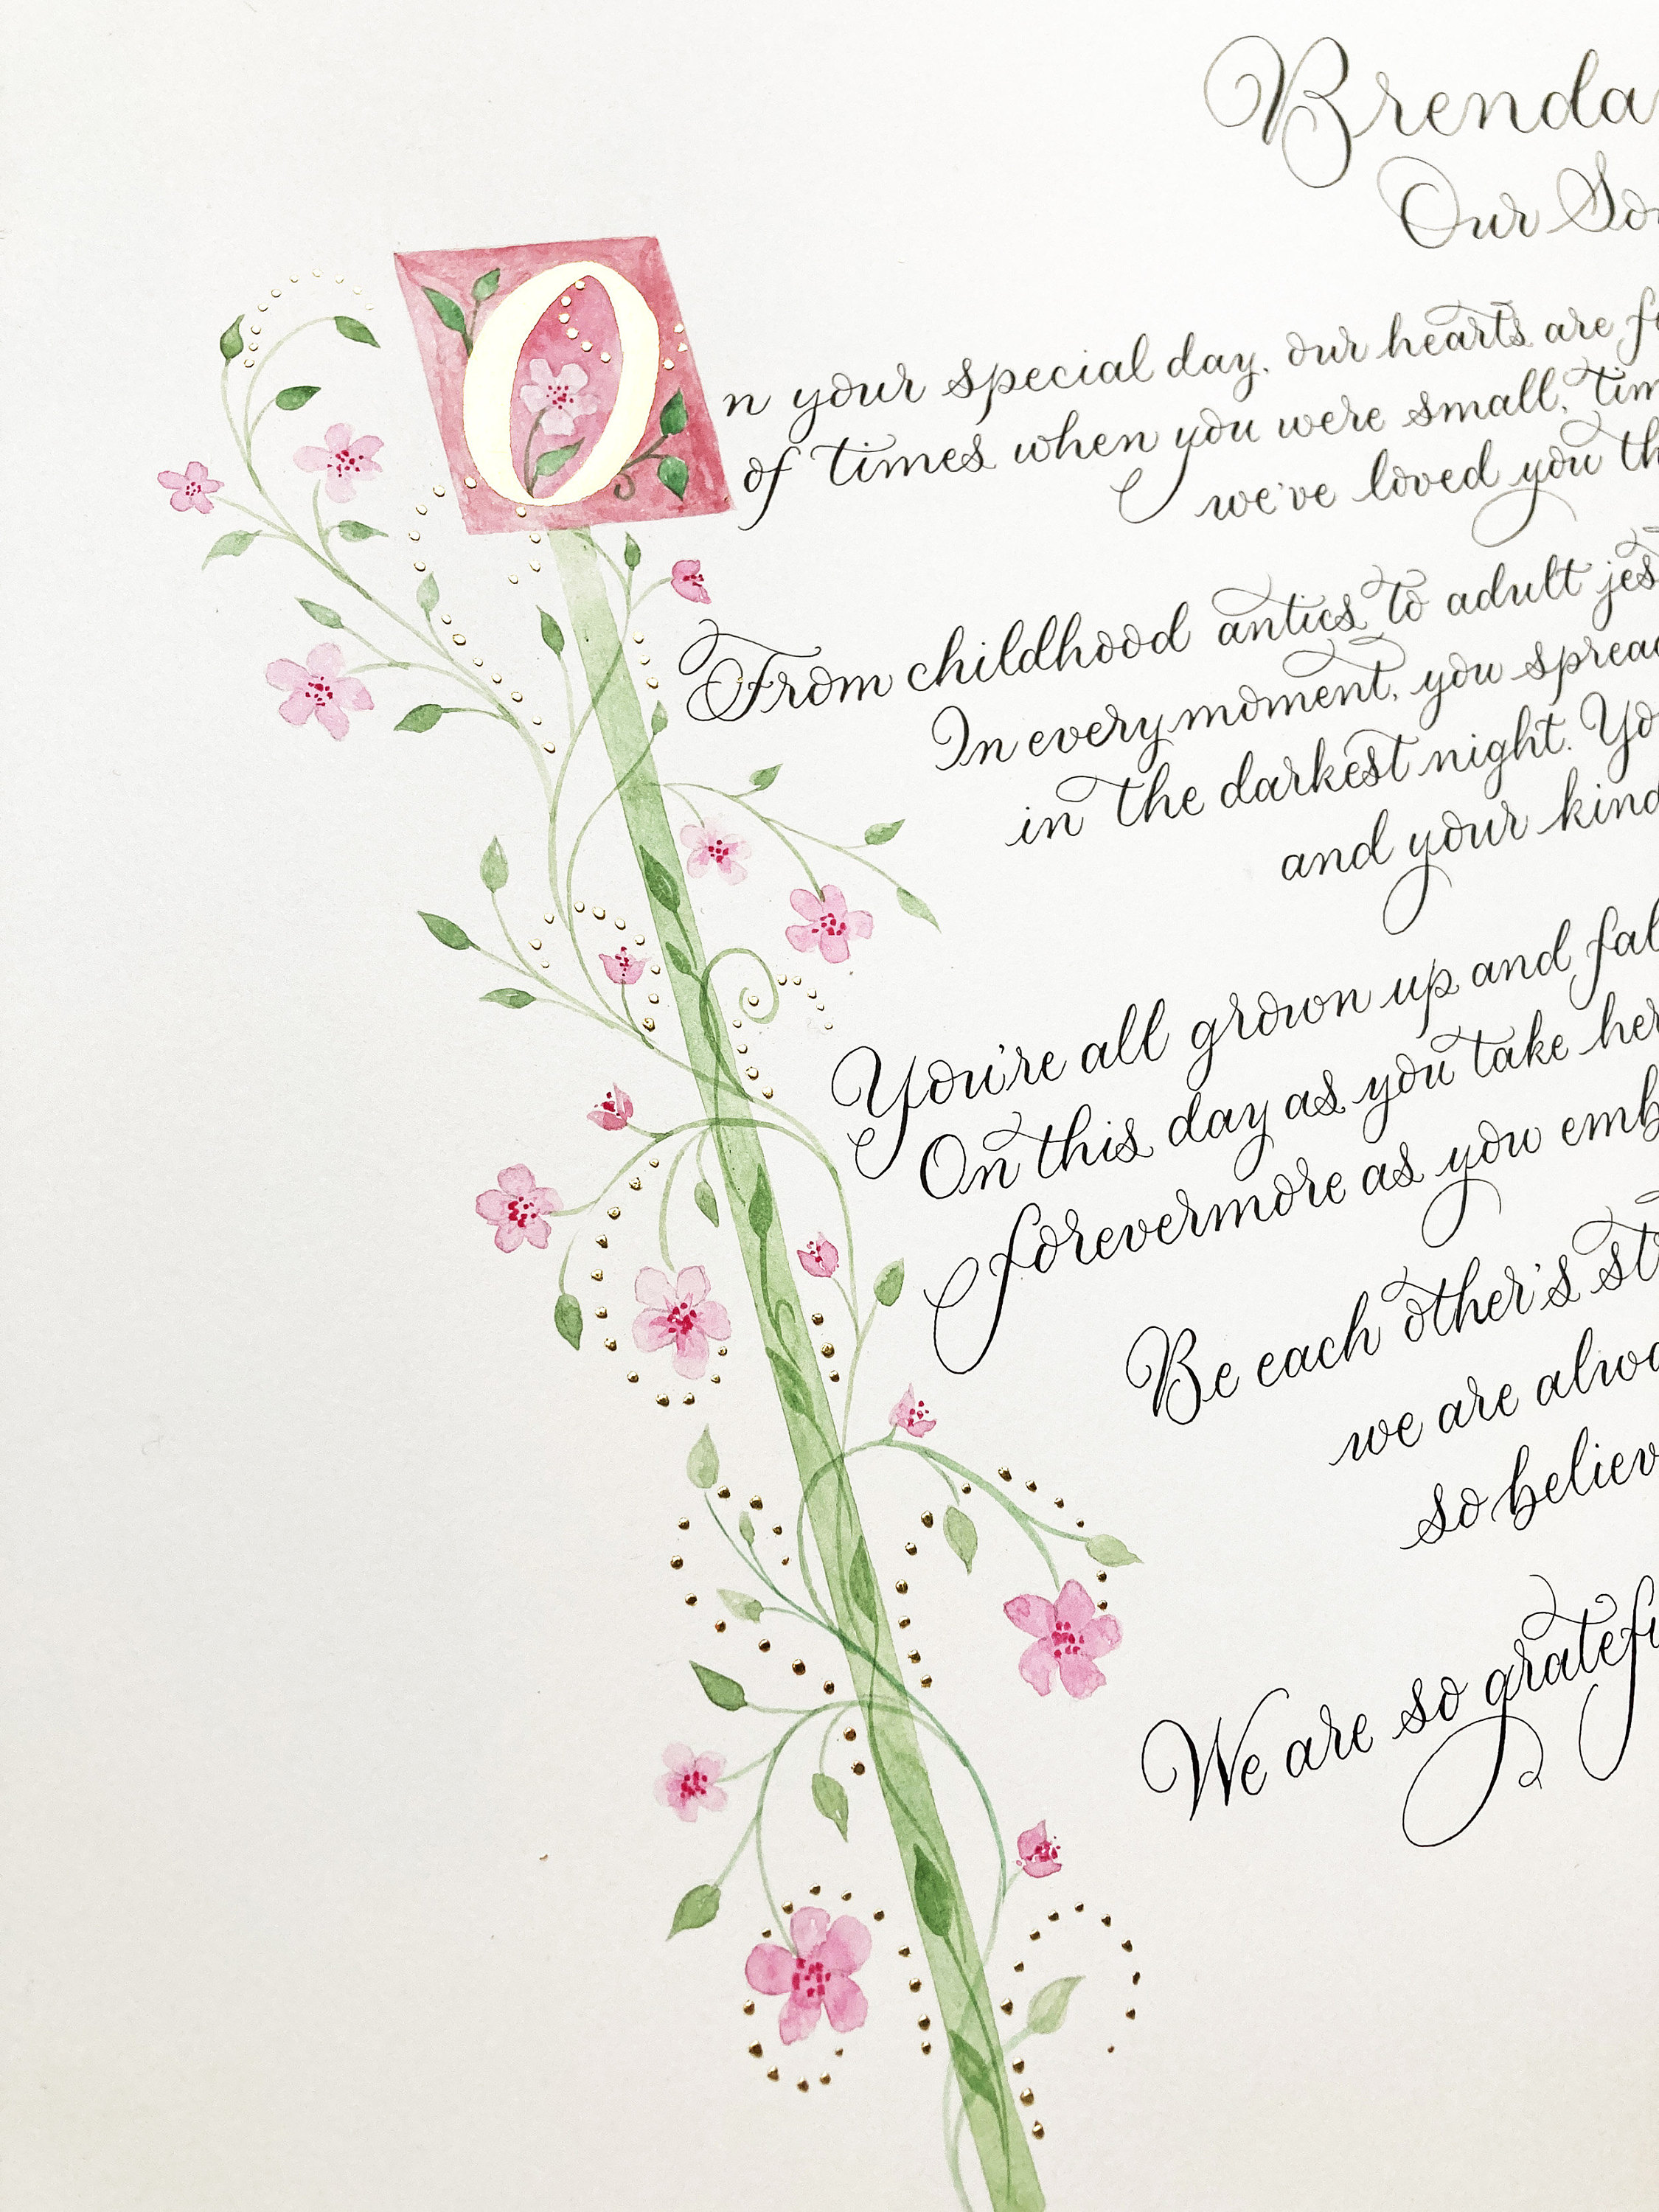 Brenda
Our
On your special day, our hearts are
of times when you were small,
we've loved you
From childhood antics to adult
In every moment, you
in the darkest night.
and your
You're all grown up and
On this day as you take
forevermore as you
Be each other's
we are
so
We are so